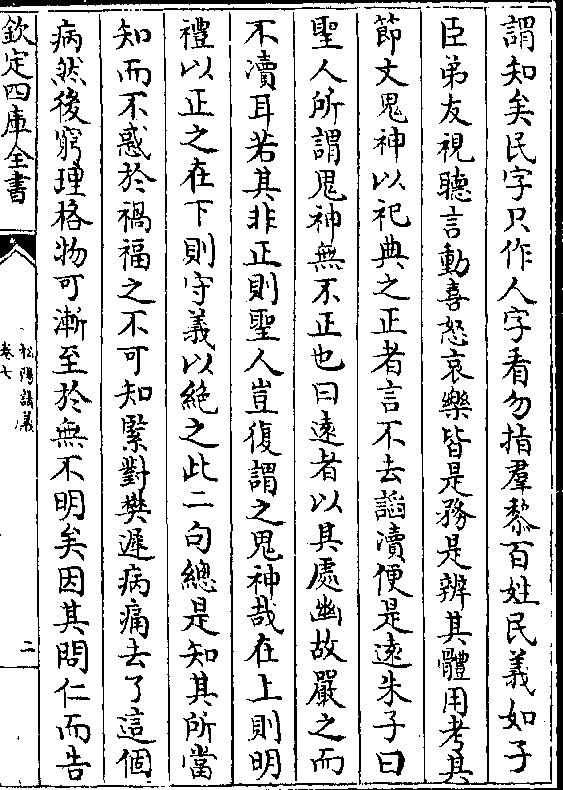 謂知矣民字只作人字看勿指羣黎百姓民義如子
臣弟友視聽言動喜怒哀樂皆是務是辨其體用考其
節文鬼神以祀典之正者言不去謟瀆便是遠朱子曰
聖人所謂鬼神無不正也曰遠者以其處幽故嚴之而
不瀆耳若其非正則聖人豈復謂之鬼神哉在上則明
禮以正之在下則守義以絶之此二句總是知其所當
知而不惑於禍福之不可知緊對樊遲病痛去了這個
病然後窮理格物可漸至於無不明矣因其問仁而告
欽定四庫全書
松陽講義
卷七
二